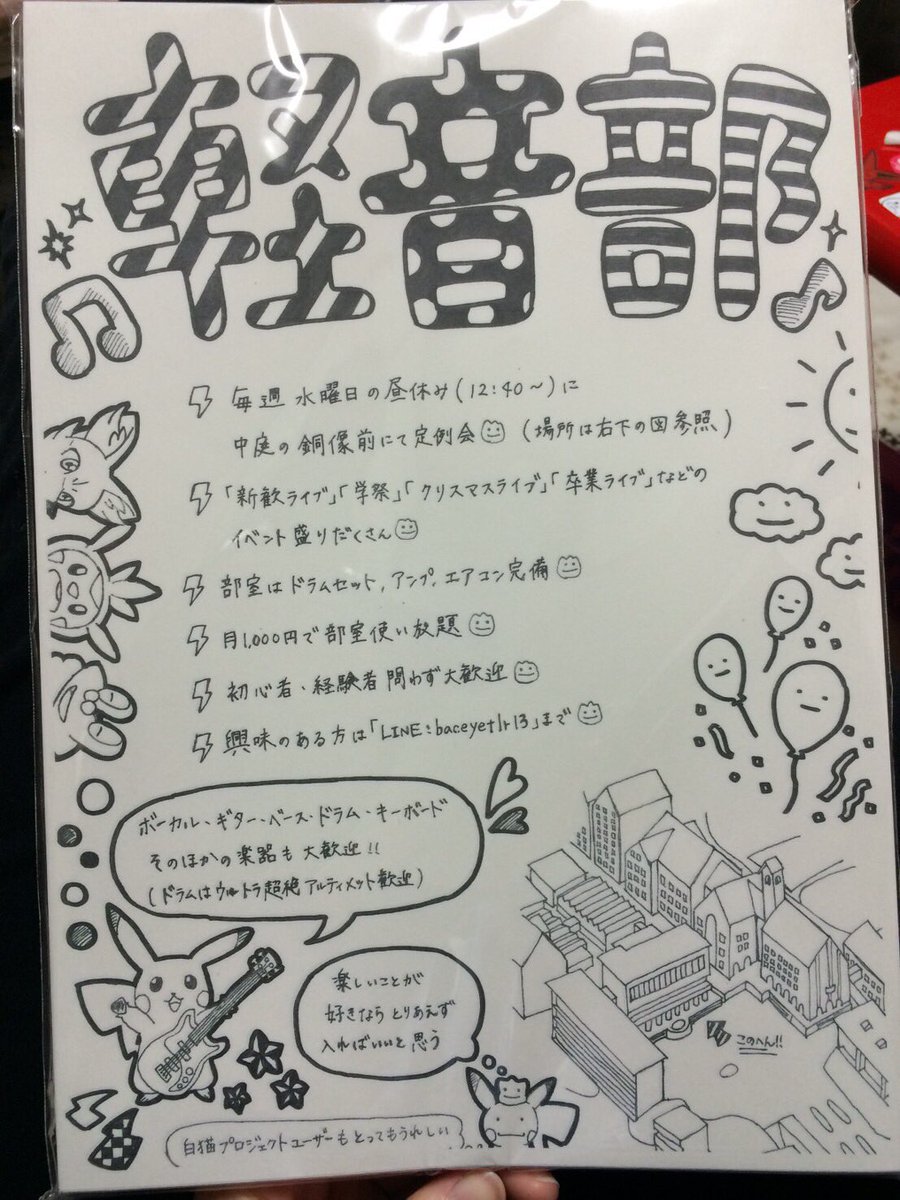 軽音部
毎週 水曜日の昼休み(12:40~)に
中庭の銅像前にて定例会 (場所は右下の図参照)
「新歓ライブ」「学祭」「クリスマスライブ」「卒業ライブ」などの
イベント盛りだくさん
部室はドラムセット,アンプ,エアコン完備
月1,000円で部室使い放題
初心者・経験者 問わず大歓迎
興味のある方は「LINE:baceyetlr13」まで
ボーカル・ギター・ベース・ドラム・キーボード
そのほかの楽器も 大歓迎!!
(ドラムはウルトラ超絶アルティメット歓迎)
楽しいことが
好きなら とりあえず
入ればいいと思う
このへん!!
白猫プロジェクトユーザーもとってもうれしい